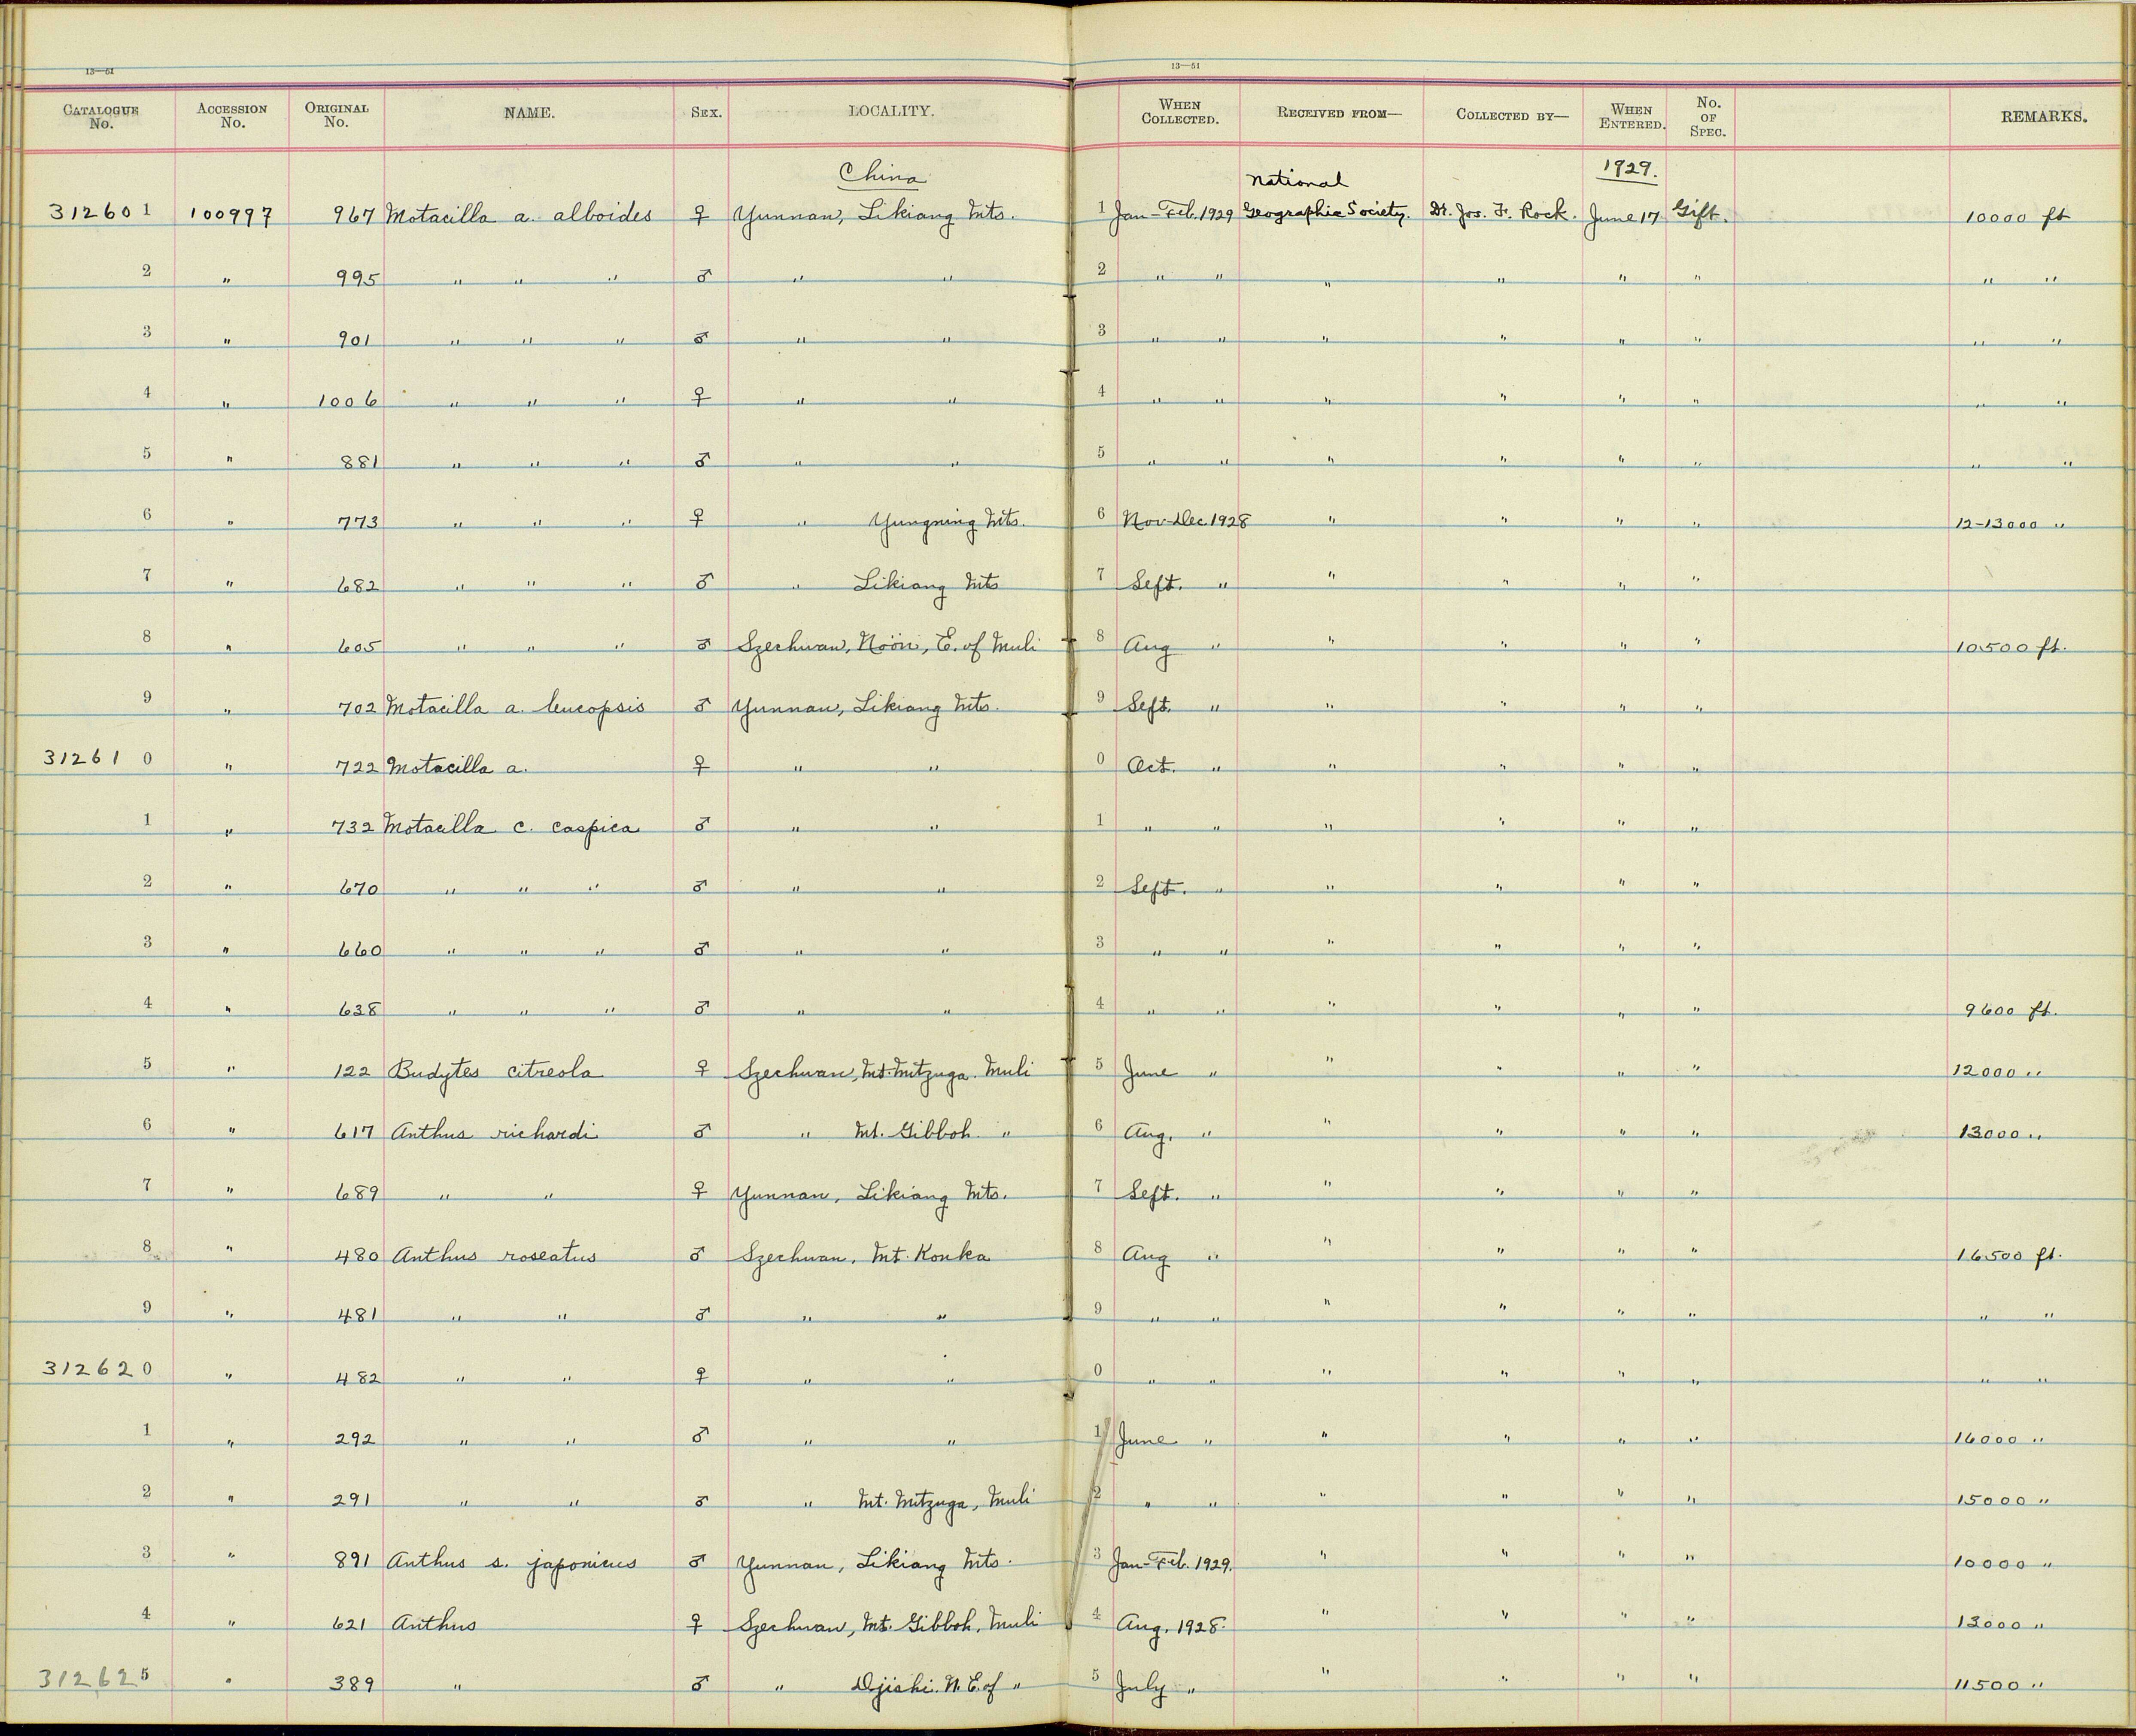 13—51 13—51
CATALOGUE No. ACCESSION No. ORIGINAL No. NAME. SEX. LOCALITY. WHEN COLLECTED. RECEIVED FROM— COLLECTED BY— WHEN ENTERED. No. OF SPEC. REMARKS.
China 1929.
312601 100997 967 Motacilla a. alboides ♀ Yunnan, Likiang Mts. 1 Jan-Feb. 1929 National Geographic Society. Dr. Jos. F. Rock. June 17 Gift. 10000 ft
2 " 995 " " " ♂ " " 2 " " " " " " " "
3 " 901 " " " ♂ " " 3 " " " " " " " "
4 " 1006 " " " ♀ " " 4 " " " " " " " "
5 " 881 " " " ♂ " " 5 " " " " " " " "
6 " 773 " " " ♀ " Yungning Mts. 6 Nov-Dec. 1928 " " " " 12-13000 "
7 " 682 " " " ♂ " Likiang Mts 7 Sept. " " " " "
8 " 605 " " " ♂ Szechwan, Noön, E. of Muli 8 Aug " " " " " 10500 ft.
9 " 702 Motacilla a. leucopsis ♂ Yunnan, Likiang Mts. 9 Sept. " " " " "
312610 " 722 Motacilla a. ♀ " " 0 Oct. " " " " "
1 " 732 Motacilla c. caspica ♂ " " 1 " " " " " "
2 " 670 " " " ♂ " " 2 Sept. " " " " "
3 " 660 " " " ♂ " " 3 " " " " " "
4 " 638 " " " ♂ " " 4 " " " " " " 9600 ft.
5 " 122 Budytes citreola ♀ Szechwan, Mt. Mitzuga. Muli 5 June " " " " " 12000 "
6 " 617 Anthus richardi ♂ " Mt. Gibboh. " 6 Aug. " " " " " 13000 "
7 " 689 " " ♀ Yunnan, Likiang Mts. 7 Sept. " " " " "
8 " 480 Anthus roseatus ♂ Szechwan, Mt. Konka 8 Aug " " " " " 16500 ft.
9 " 481 " " ♂ " " 9 " " " " " " " "
312620 " 482 " " ♀ " " 0 " " " " " " " "
1 " 292 " " ♂ " " 1 June " " " " " 16000 "
2 " 291 " " ♂ " Mt. Mitzuga, Muli 2 " " " " " " 15000 "
3 " 891 Anthus s. japonicus ♂ Yunnan, Likiang Mts. 3 Jan-Feb. 1929. " " " " 10000 "
4 " 621 Anthus ♀ Szechwan, Mt. Gibboh, Muli 4 Aug. 1928. " " " " 13000 "
312625 " 389 " ♂ " Djiashi. N. E. of " 5 July " " " " " 11500 "